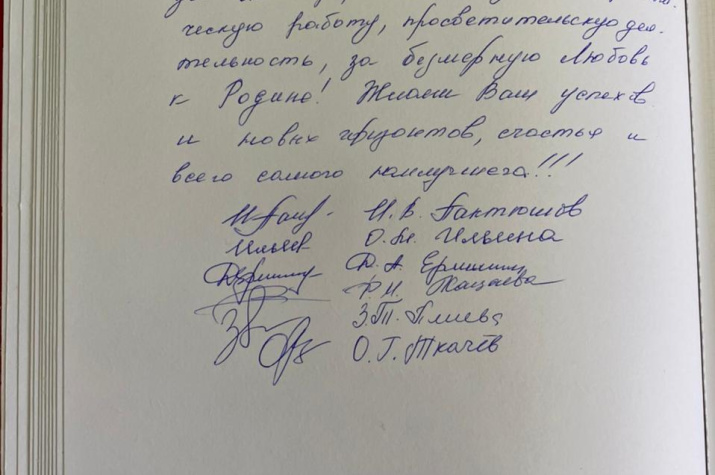 ческую работу, просветительскую дея-
тельность, за безмерную любовь
к Родине! Желаем Вам успехов
и новых горизонтов, счастья и
всего самого наилучшего!!!
И.В. Пантюшов
О.М. Ильина
Д.А. Ермишин
Р.Н. Кацаева
З.Т. Плиева
О.Г. Ткачёв